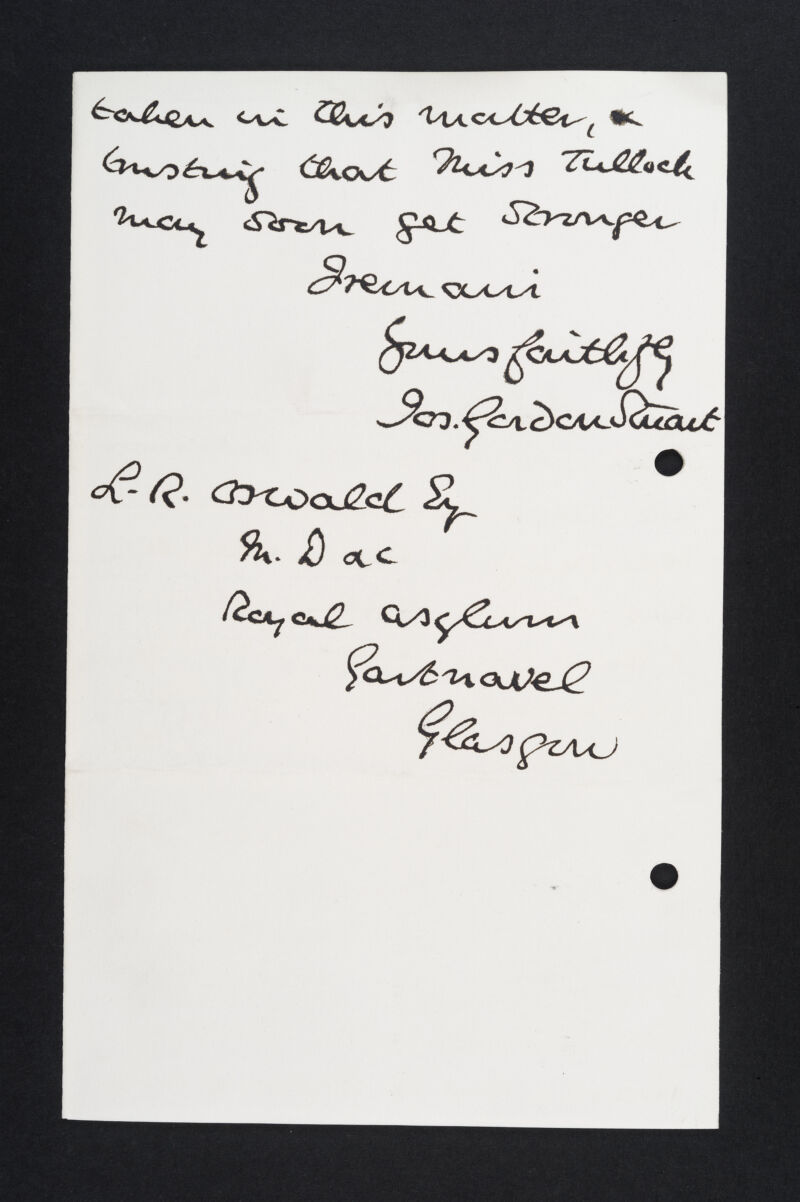 taken in this matter, &
trusting that Miss Tulloch
may soon get stronger
I remain
Yours faithfully
Jos. Gordon Stuart
L. R. Oswald Esq
M. D &c
Royal Asylum
Gartnavel
Glasgow